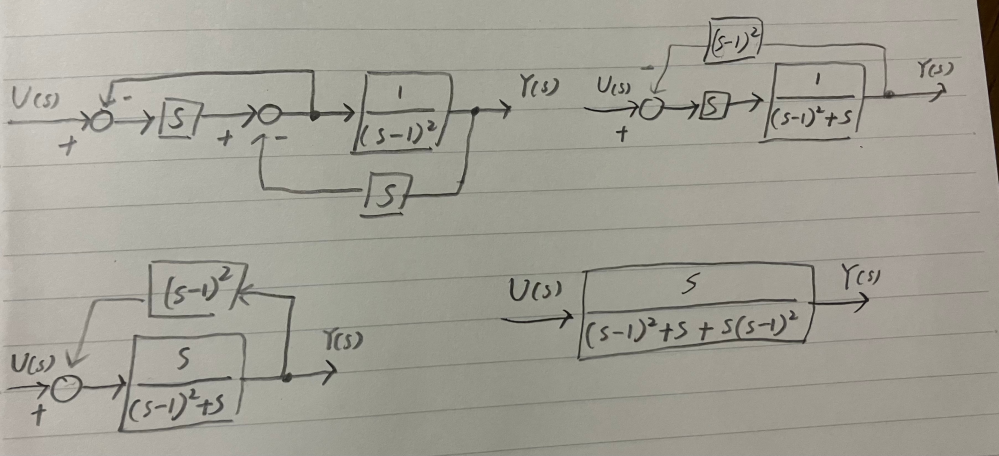 U(s) + - S + - 1/(s-1)² Y(s)
S
(s-1)²
U(s) + - S 1/((s-1)²+s) Y(s)
(s-1)²
U(s) + S/((s-1)²+s) Y(s)
U(s) S/((s-1)²+s+s(s-1)²) Y(s)